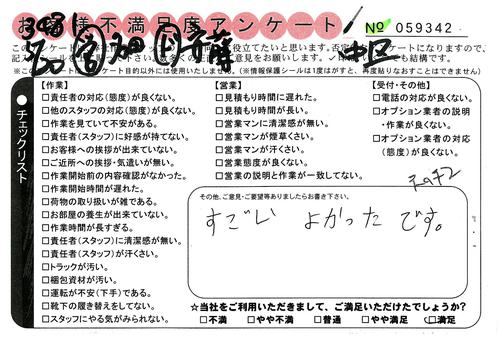 お客様不満足度アンケート
No 059342
中区
チェックリスト
【作業】
□責任者の対応(態度)が良くない。
□他のスタッフの対応(態度)が良くない。
□作業を見ていて不安がある。
□責任者(スタッフ)に好感が持てない。
□お客様への挨拶が出来ていない。
□ご近所への挨拶・気遣いが無い。
□作業開始前の内容確認がなかった。
□作業開始時間が遅れた。
□荷物の取り扱いが雑である。
□お部屋の養生が出来ていない。
□作業時間が長すぎる。
□責任者(スタッフ)に清潔感が無い。
□責任者(スタッフ)が汗くさい。
□トラックが汚い。
□梱包資材が汚い。
□運転が不安(下手)である。
□靴下の履き替えをしてない。
□スタッフにやる気がみられない。
【営業】
□見積もり時間に遅れた。
□見積もり時間が長い。
□営業マンに清潔感が無い。
□営業マンが煙草くさい。
□営業マンが汗くさい。
□営業態度が良くない。
□営業の説明と作業が一致してない。
【受付・その他】
□電話の対応が良くない。
□オプション業者の説明
・作業が良くない。
□オプション業者の対応
(態度)が良くない。
その他、ご意見・ご要望等ありましたらお書き下さい。
すごい よかった です。
☆当社をご利用いただきまして、ご満足いただけたでしょうか?
□不満 □やや不満 □普通 □やや満足 □満足